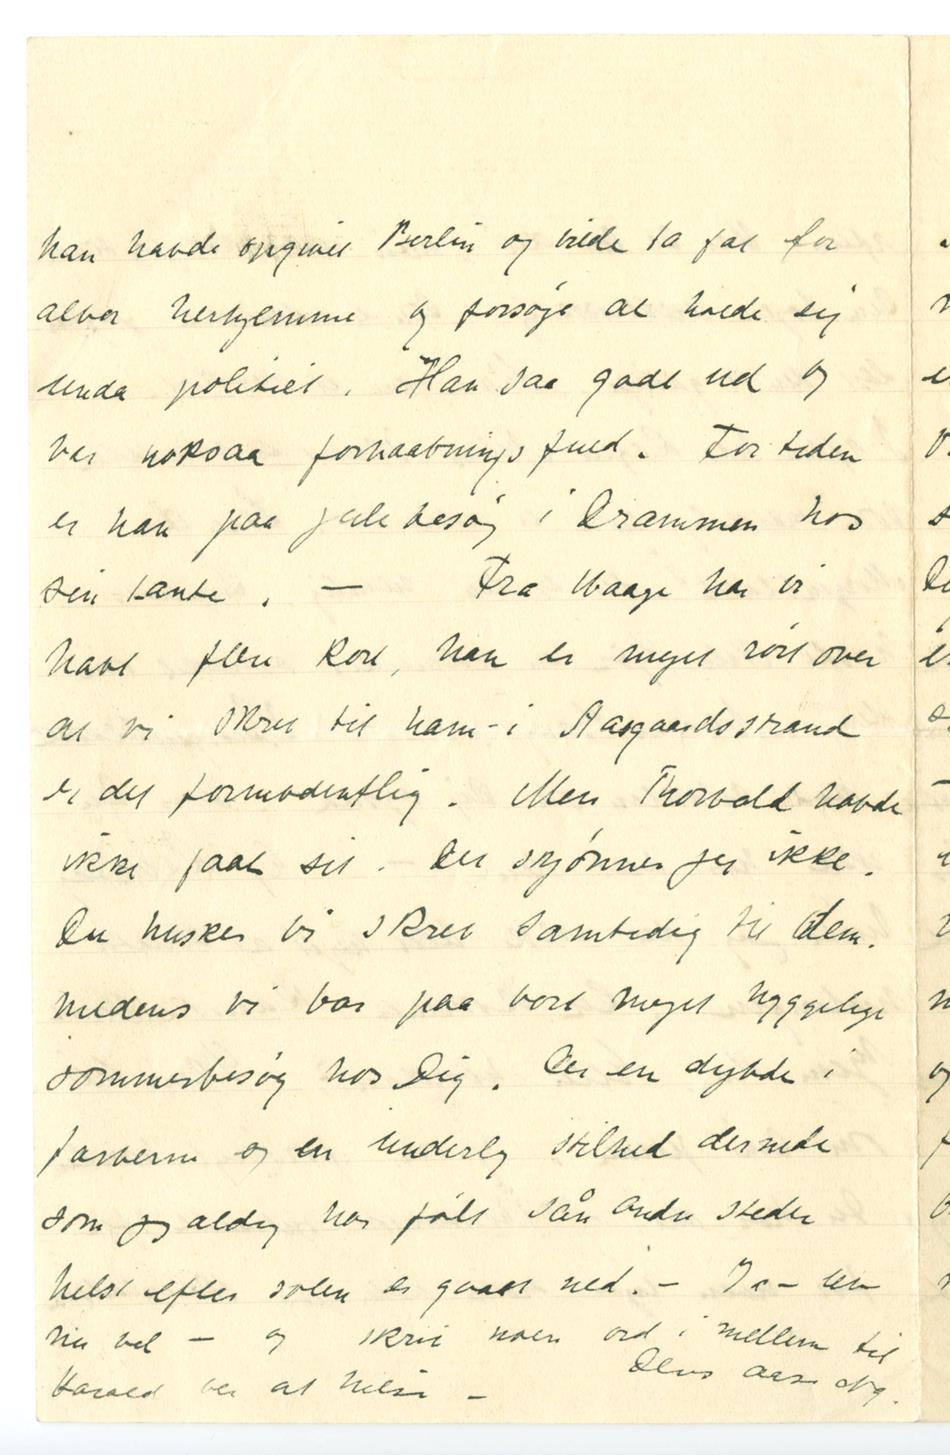 han havde opgivet Berlin og vilde ta fat for
alvor herhjemme og forsøge at holde sig
unda politiet. Han saa godt ud og
var noksaa forhaabningsfuld. For tiden
er han paa julebesøg i Drammen hos
sin tante. — Fra Waage har vi
havt flere kort, han er meget rørt over
at vi skrev til ham - i Aasgaardsstrand
er det formodentlig. Men Thorvald havde
ikke faat sit. Det skjønner jeg ikke.
Du husker vi skrev samtidig til dem.
medens vi var paa vort meget hyggelige
sommerbesøg hos Dig. Der er en dybde i
farverne og en underlig stilhed dernede
som jeg aldrig har følt sån andre steder
helst efter solen er gaaet ned. — Ja - lev
nu vel — og skriv noen ord i mellem til
Harald ber at hilse —